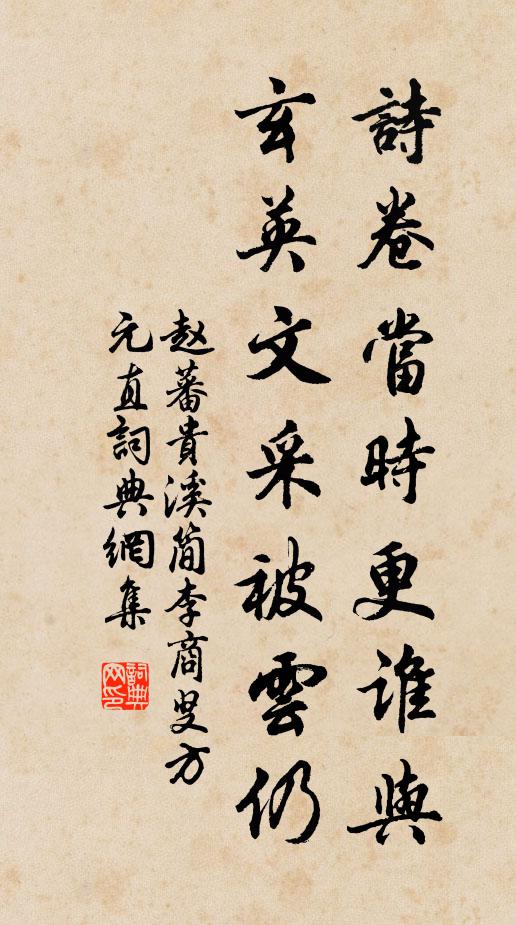 詩卷當時更誰與
玄英文采被雲仍
赵蕃貴溪简李商叟方
元直詞典網集
詞典
网印